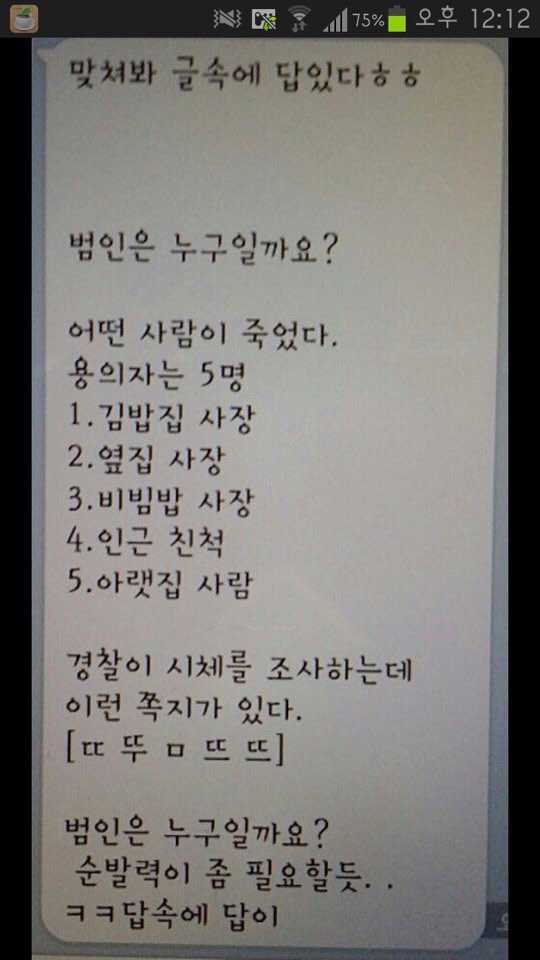 75% 오후 12:12
맞쳐봐 글속에 답있다ㅎㅎ
범인은 누구일까요?
어떤 사람이 죽었다.
용의자는 5명
1.김밥집 사장
2.옆집 사장
3.비빔밥 사장
4.인근 친척
5.아랫집 사람
경찰이 시체를 조사하는데
이런 쪽지가 있다.
[ㄸ 뚜 ㅁ 뜨 뜨]
범인은 누구일까요?
순발력이 좀 필요할듯. .
ㅋㅋ답속에 답이